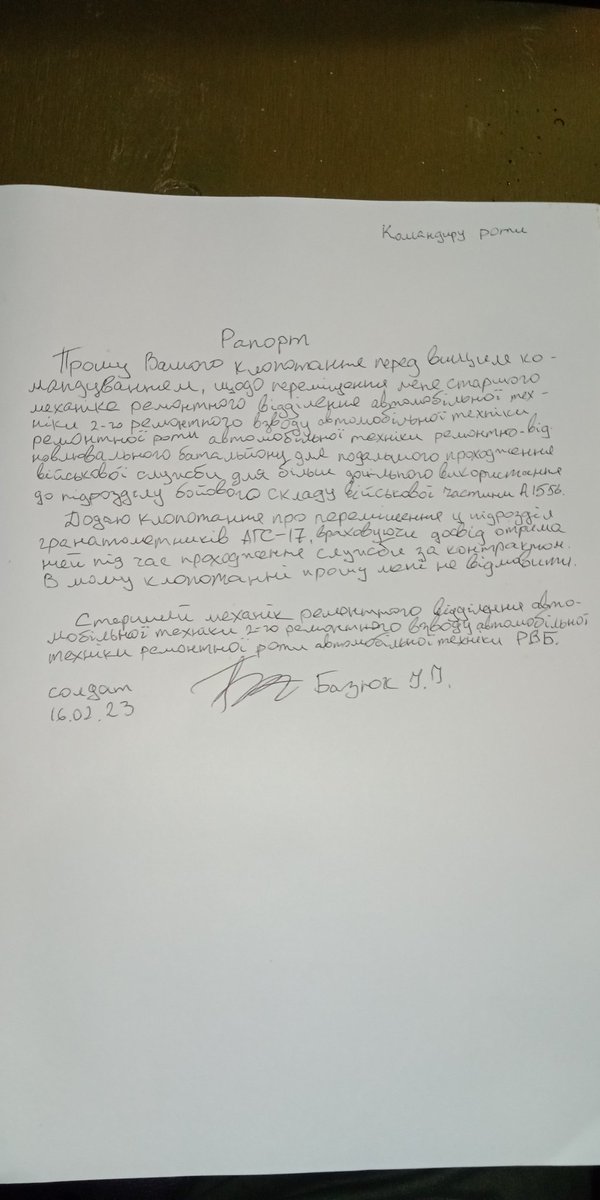 Командиру роти
Рапорт
Прошу Вашого клопотання перед вищиме ко-
мандуванням, щодо переміщення мене старшого
механіка ремонтного відділення автомобільної тех-
ніки 2-го ремонтного взводу автомобільної техніки
ремонтної роти автомобільної техніки ремонтно-від
новлювального батальйону для подальшого проходження
військової служби для більш доцільного використання
до підрозділу бойового складу військової частини А1556.
Додаю клопотання про переміщення у підрозділ
гранатометників АГС-17, враховуючи довід отрима
ней під час проходження служби за контрактом.
В мому клопотанні прошу мені не відмовити.
Старший механік ремонтного відділення авто-
мобільної техніки 2-го ремонтного взводу автомобільної
техніки ремонтної роти автомобільної техніки РВБ.
солдат Базюк
16.02.23